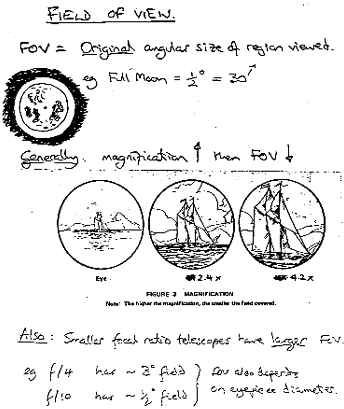 FIELD OF VIEW.
FOV = Original angular size of region viewed.
eg Full Moon = ½° = 30'
Generally: magnification ↑ then FOV ↓
Eye
2.4x
4.2x
FIGURE 3 MAGNIFICATION
Note: The higher the magnification, the smaller the field covered.
Also: Smaller focal ratio telescopes have larger FoV.
eg f/4 has ~ 3° field } FOV also depends
f/10 has ~ ½° field } on eyepiece diameter.